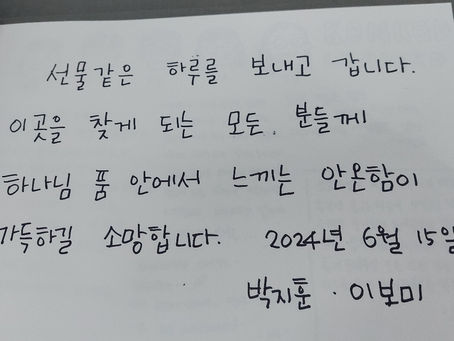 선물같은 하루를 보내고 갑니다.
이곳을 찾게 되는 모든 분들께
하나님 품 안에서 느끼는 안온함이
가득하길 소망합니다. 2024년 6월 15일
박지훈 · 이보미